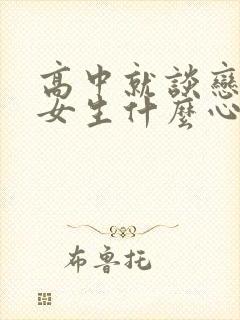 高中就談戀
女生什麼心
布魯托